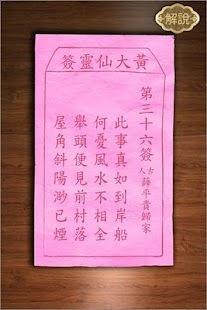 解說
黃大仙靈簽
第三十六簽 古人 薛平貴歸家
此事真如到岸船
何憂風水不相全
舉頭便見前村落
屋角斜陽渺已煙